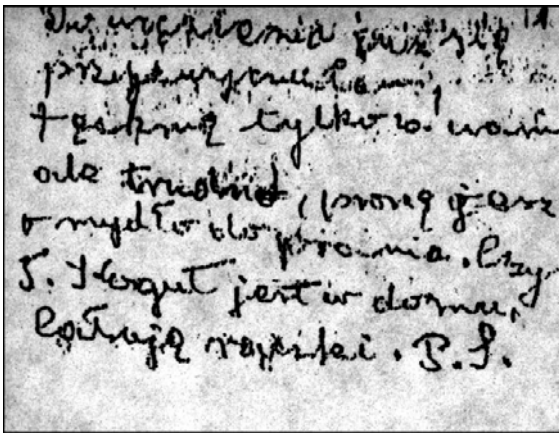 Do więzienia już się
przyzwyczaiłam,
tęsknię tylko za wami
ale trudno, proszę jesz
o mydło do prania. Czy
S. Kogut jest w domu,
Całuję rączki. P. S.